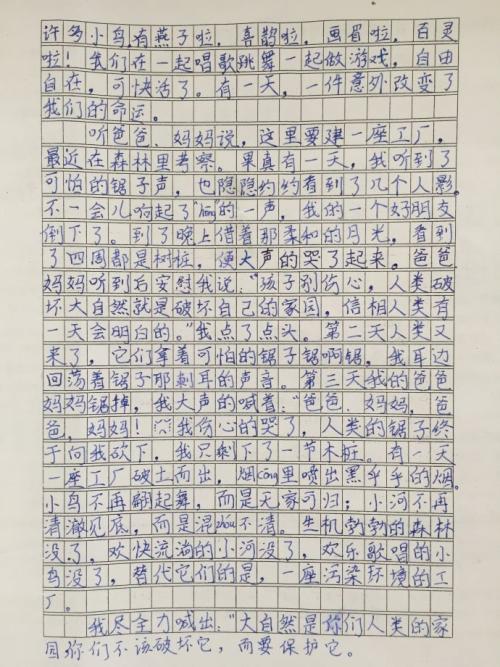 许多小鸟,有燕子啦,喜鹊啦,画眉啦,百灵
啦!我们在一起唱歌跳舞一起做游戏,自由
自在,可快活了。有一天,一件意外改变了
我们的命运。
听爸爸、妈妈说,这里要建一座工厂,
最近在森林里考察。果真有一天,我听到了
可怕的锯子声,也隐隐约约看到了几个人影。
不一会儿响起了"hōng"的一声,我的一个好朋友
倒下了。到了晚上借着那柔和的月光,看到
了四周都是树桩,便大声的哭了起来。爸爸
妈妈听到后安慰我说:"孩子别伤心,人类破
坏大自然就是破坏自己的家园,信相人类有
一天会明白的。"我点了点头。第二天人类又
来了,它们拿着可怕的锯子锯啊锯,我耳边
回荡着锯子那刺耳的声音。第三天我的爸爸
妈妈锯掉,我大声的喊着:"爸爸、妈妈,爸
爸,妈妈!我伤心的哭了,人类的锯子终
于向我砍下,我只剩下了一节木桩。有一天
一座工厂破土而出,烟cōng里喷出黑乎乎的烟。
小鸟不再翩起舞,而是无家可归;小河不再
清澈见底,而是混zhuó不清。生机勃勃的森林
没了,欢快流淌的小河没了,欢乐歌唱的小
鸟没了,替代它们的是,一座污染环境的工
厂。
我尽全力喊出:"大自然是你们人类的家
园你们不该破坏它,而要保护它。